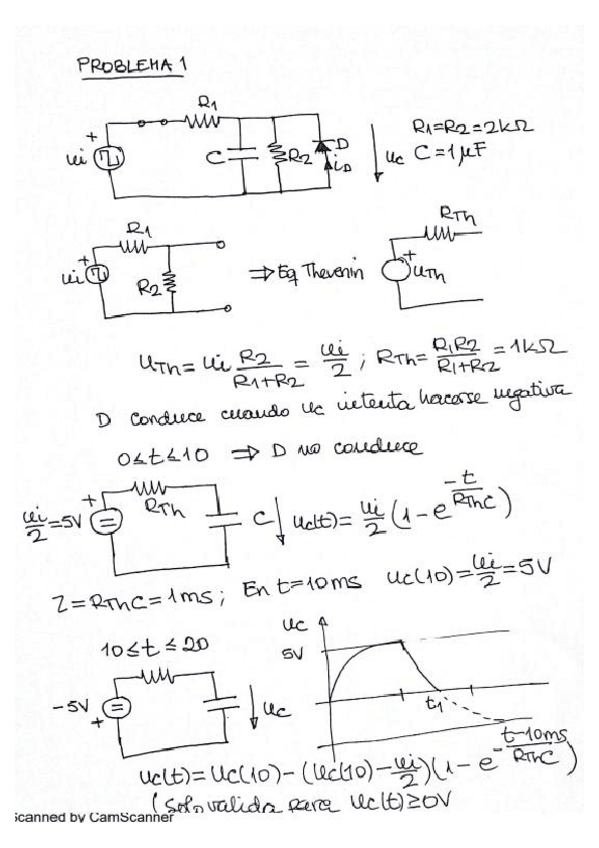 PROBLEMA 1
R1
+
ui
C
R2
D
iD
uc
R1=R2=2kΩ
C=1μF
R1
+
ui
R2
⇒ Eq Thevenin
RTh
+
uTh
uTh = ui R2/(R1+R2) = ui/2 ; RTh = R1R2/(R1+R2) = 1kΩ
D conduce cuando uc intenta hacerse negativa
0≤t≤10 ⇒ D no conduce
ui/2 = 5V
+
RTh
C
uc(t) = ui/2 (1 - e^(-t/RThC))
Z = RThC = 1ms ; En t=10ms uc(10) = ui/2 = 5V
10≤t≤20
-5V
+
uc
uc
5V
t1
uc(t) = uc(10) - (uc(10) - ui/2)(1 - e^(-(t-10ms)/RThC))
(Solo valida para uc(t)≥0V
Scanned by CamScanner